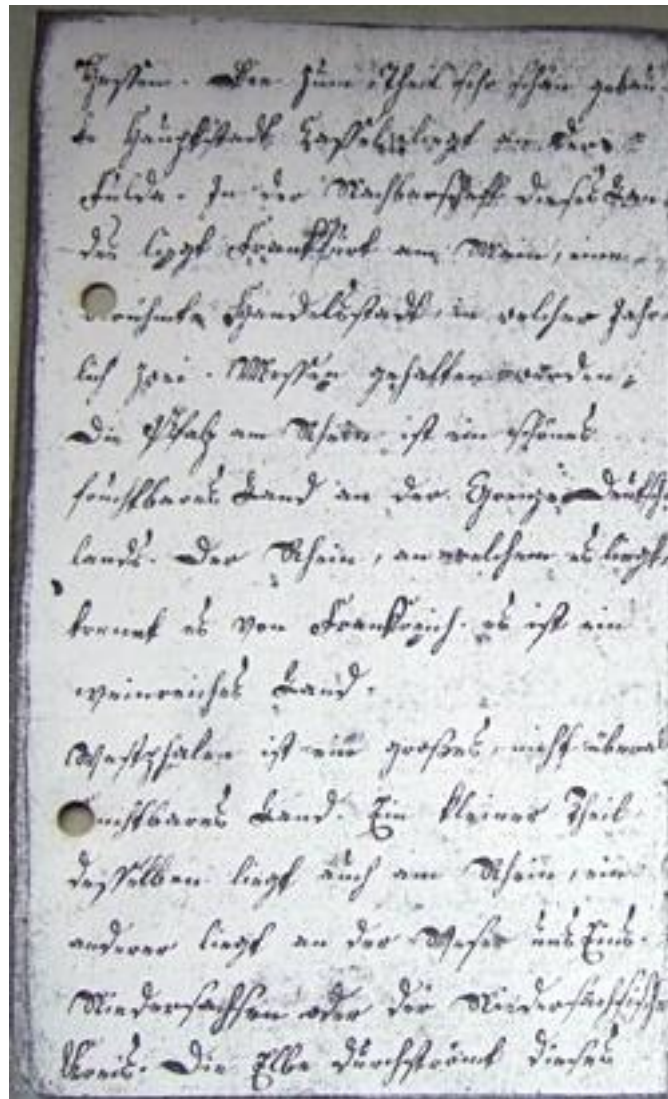 Hessen. Die zum Theil sehr schön gebau
te Hauptstadt Cassel liegt an der
Fulda. In der Nachbarschaft dieses Lan
des liegt Frankfurt am Main, eine
rühmte Handelsstadt, in welcher jähr
lich zwei Messen gehalten werden.
Die Pfalz am Rhein ist ein schönes
fruchtbares Land an der Grenze Deutsch
lands. Der Rhein, an welchem es liegt,
trennt es von Frankreich. es ist ein
weinreiches Land.
Westphalen ist ein großes, nicht überal
uchtbares Land. Ein kleiner Theil
desselben liegt auch am Rhein, ein
anderer liegt an der Weser und Ems.
Niedersachsen oder der Niedersächsische
Kreis. Die Elbe durchströmt dieses